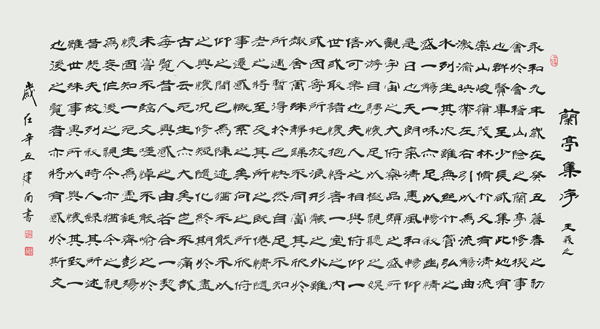 蘭亭集序
王羲之
永和九年歲在癸丑暮春之初
會於會稽山陰之蘭亭修禊事
也群賢畢至少長咸集此地有
崇山峻領茂林修竹又有清流
激湍映帶左右引以為流觴曲
水列坐其次雖無絲竹管弦之
盛一觴一詠亦足以暢敘幽情
是日也天朗氣清惠風和暢仰
觀宇宙之大俯察品類之盛所
以游目騁懷足以極視聽之娛
信可樂也夫人之相與俯仰一
世或取諸懷抱悟言一室之內
或因寄所託放浪形骸之外雖
趣舍萬殊靜躁不同當其欣於
所遇暫得於己快然自足不知
老之將至及其所之既倦情隨
事遷感慨係之矣向之所欣俯
仰之間已為陳迹猶不能不以
之興懷況修短隨化終期於盡
古人云死生亦大矣豈不痛哉
每覽昔人興感之由若合一契
未嘗不臨文嗟悼不能喻之於
懷固知一死生為虛誕齊彭殤
為妄作後之視今亦由今之視
昔悲夫故列敘時人錄其所述
雖世殊事異所以興懷其致一
也後之覽者亦將有感於斯文
歲在辛丑建南書